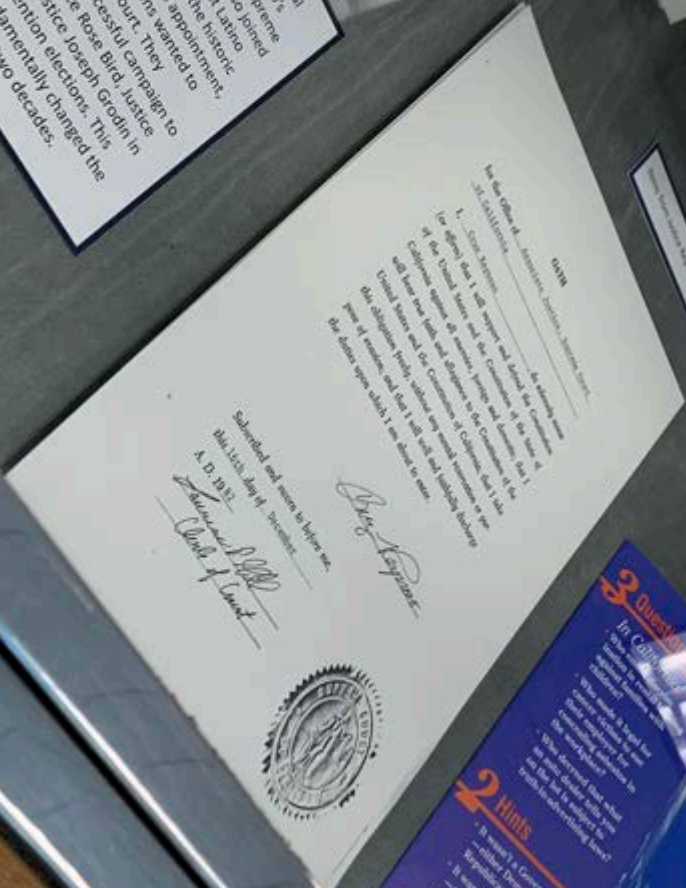 preme
so joined
t Latino
the historic
appointment,
ns wanted to
ourt. They
cessful campaign to
e Rose Bird, Justice
stice Joseph Grodin in
ention elections. This
amentally changed the
wo decades.
OATH
for the Office of Associate Justice, Supreme Court
of California
I, Cruz Reynoso, do solemnly swear
(or affirm) that I will support and defend the Constitution
of the United States and the Constitution of the State of
California against all enemies, foreign and domestic; that I
will bear true faith and allegiance to the Constitution of the
United States and the Constitution of California; that I take
this obligation freely, without any mental reservation or pur-
pose of evasion; and that I will well and faithfully discharge
the duties upon which I am about to enter.
Cruz Reynoso
Subscribed and sworn to before me,
this 16th day of December
A. D. 1982
Clerk of Court
3 Questio
In Califo
Who made it legal for
their employer for
the workplace?
Who decreed that what
an auto dealer tells you
on the lot is subject to
truth-in-advertising laws?
2 Hints
It wasn't a Gov
either De
Republic
It was